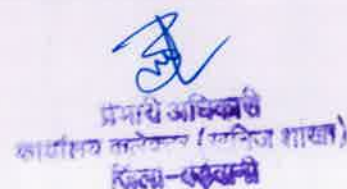 प्रभारी अधिकारी
कार्यालय कलेक्टर (खनिज शाखा)
जिला-बड़वानी